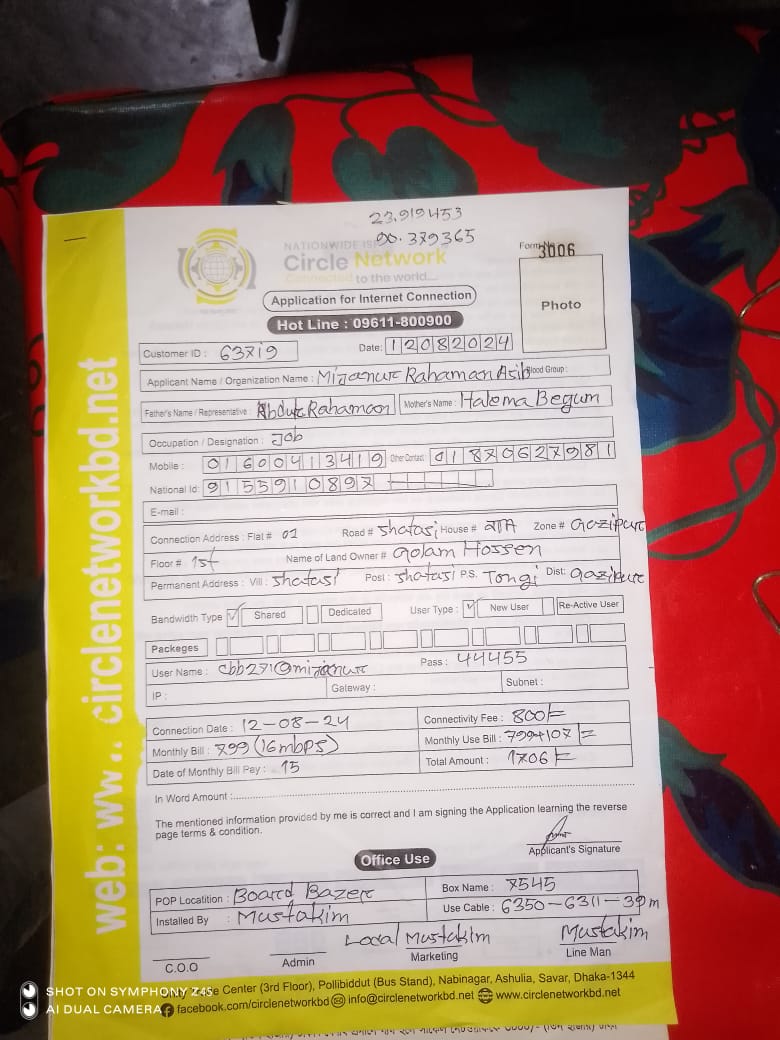 23.919453
90.379365
NATIONWIDE ISP
Circle Network
Connected to the world....
Form No 3006
Photo
Application for Internet Connection
Hot Line : 09611-800900
Customer ID : 63719 Date: 12082024
Applicant Name / Organization Name : Mizanur Rahaman Asib Blood Group :
Father's Name / Representative : Abdur Rahaman Mother's Name : Halema Begum
Occupation / Designation : Job
Mobile : 01600413419 Other Contact: 01870627981
National Id: 9155910897
E-mail :
Connection Address : Flat # 01 Road # Shatasi House # Zone # Gazipur
Floor # 1st Name of Land Owner # Golam Hossen
Permanent Address : Vill : Shatasi Post : Shatasi P.S. Tongi Dist: Gazipur
Bandwidth Type ✓ Shared Dedicated User Type : ✓ New User Re-Active User
Packeges
User Name : cbb271@mizanur Pass : 44455
IP : Gateway : Subnet :
Connection Date : 12-08-24 Connectivity Fee : 800/=
Monthly Bill : 799 (16mbps) Monthly Use Bill : 799+107/=
Date of Monthly Bill Pay : 15 Total Amount : 1706/=
In Word Amount :
The mentioned information provided by me is correct and I am signing the Application learning the reverse
page terms & condition.
Applicant's Signature
Office Use
POP Locatition : Board Bazer Box Name : 7545
Installed By : Mustakim Use Cable : 6350-6311-39m
Local Mustakim Mustakim
C.O.O Admin Marketing Line Man
Center (3rd Floor), Pollibiddut (Bus Stand), Nabinagar, Ashulia, Savar, Dhaka-1344
facebook.com/circlenetworkbd info@circlenetworkbd.net www.circlenetworkbd.net
web: ww... circlenetworkbd.net
SHOT ON SYMPHONY Z45
AI DUAL CAMERA